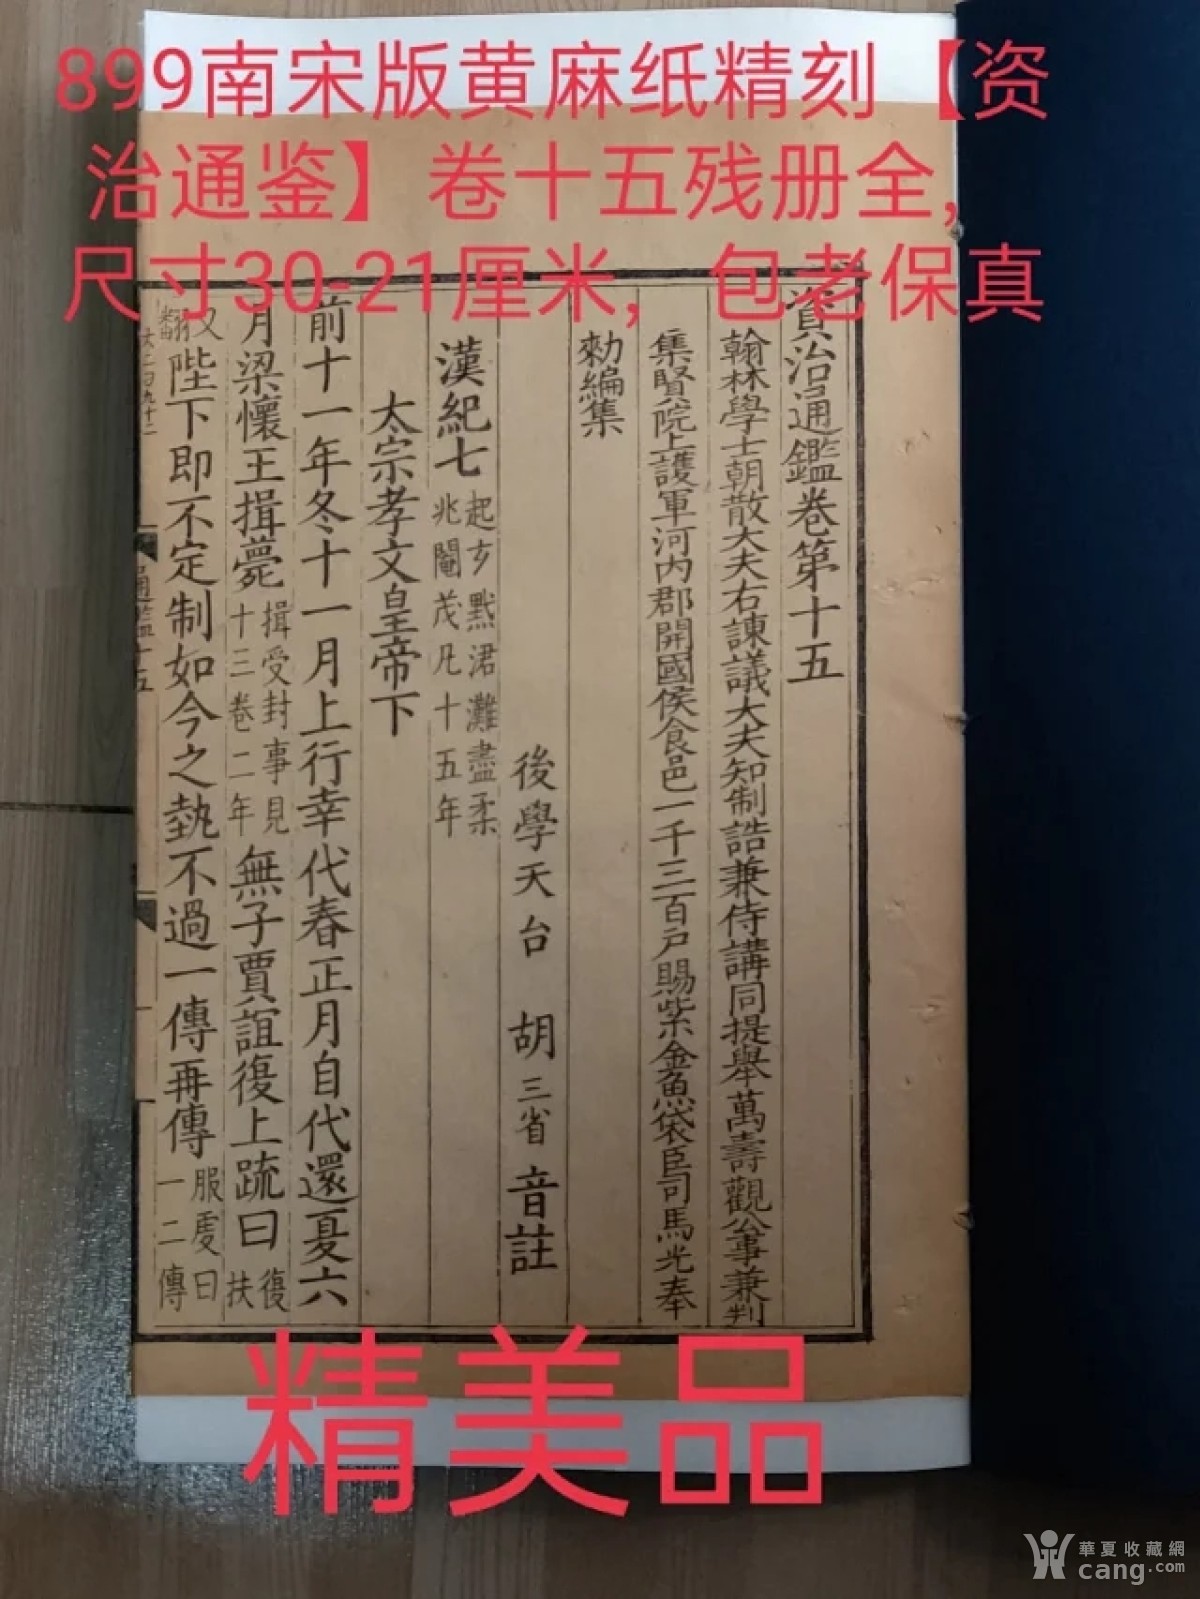 899南宋版黄麻纸精刻【资
治通鉴】卷十五残册全,
尺寸30-21厘米，包老保真
資治通鑑卷第十五
翰林學士朝散大夫右諫議大夫知制誥兼侍講同提舉萬壽觀公事兼判
集賢院上護軍河内郡開國侯食邑一千三百戶賜紫金魚袋臣司馬光奉
勑編集
後學天台 胡三省音註
漢紀七
起玄黓涒灘盡柔
兆閹茂凡十五年
太宗孝文皇帝下
前十一年冬十一月上行幸代春正月自代還夏六
月梁懷王揖薨
揖受封事見
十三卷二年
無子賈誼復上䟽曰
復
扶
又
翻
陛下即不定制如今之埶不過一傳再傳
服虔曰
一二傳
通鑑十五
精美品
華夏收藏網
cang.com